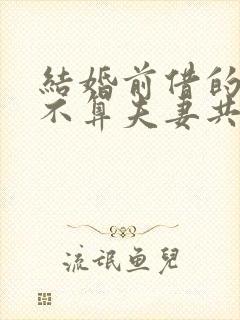 結婚前借的
不算夫妻共
流氓鱼兒